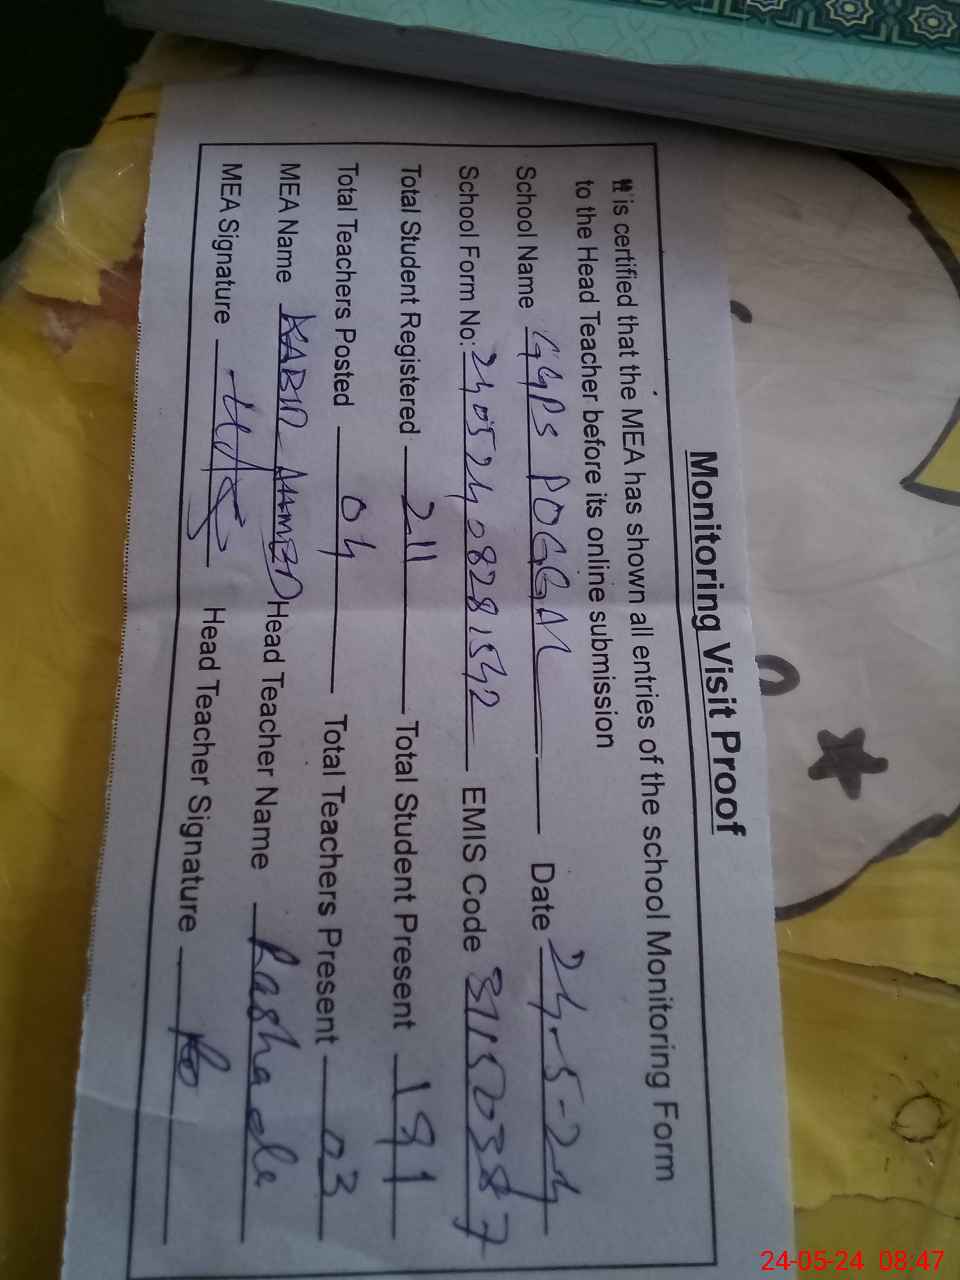 Monitoring Visit Proof
It is certified that the MEA has shown all entries of the school Monitoring Form
to the Head Teacher before its online submission
School Name GGPS POGGAL Date 24-5-24
School Form No: 24052408281542 EMIS Code
Total Student Registered 211 Total Student Present 191
Total Teachers Posted 04 Total Teachers Present 03
MEA Name KABIR AHMED Head Teacher Name
MEA Signature Head Teacher Signature
24-05-24 08:47